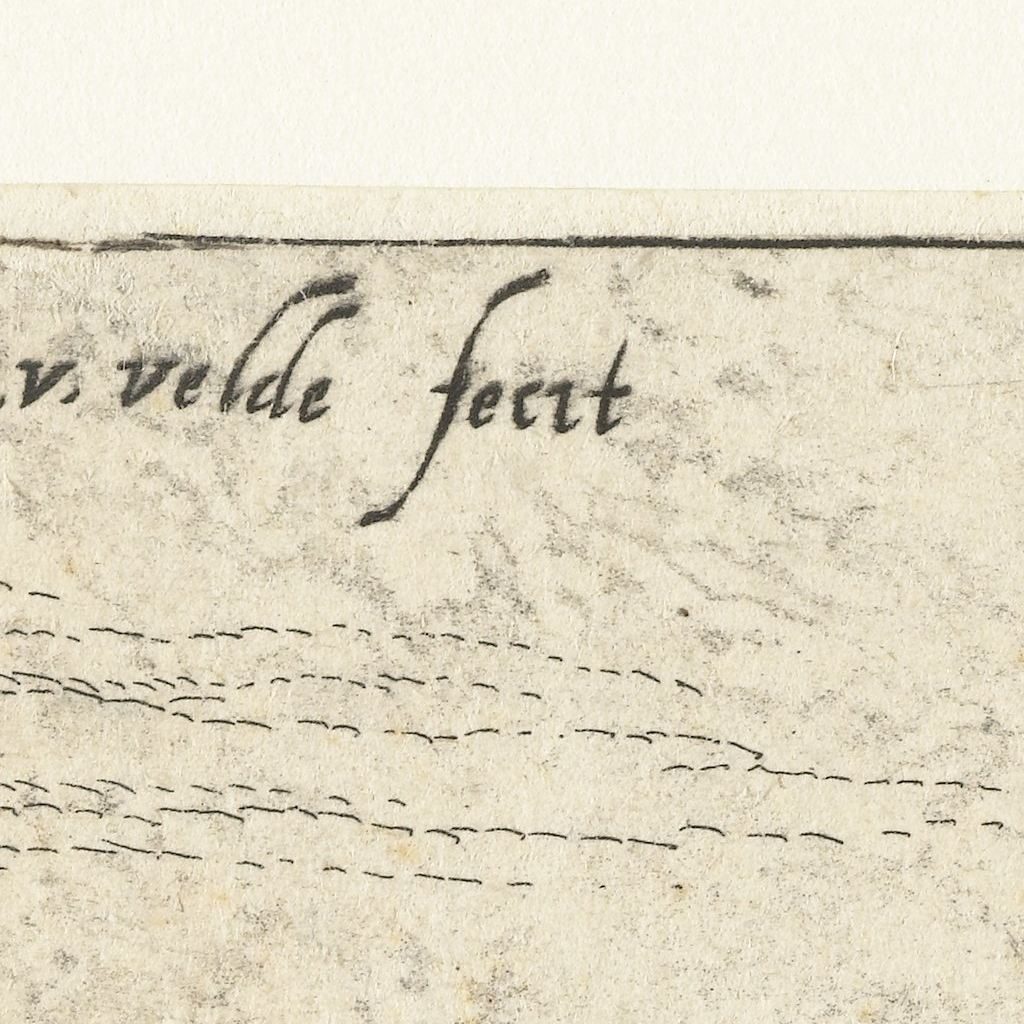 .v. velde fecit